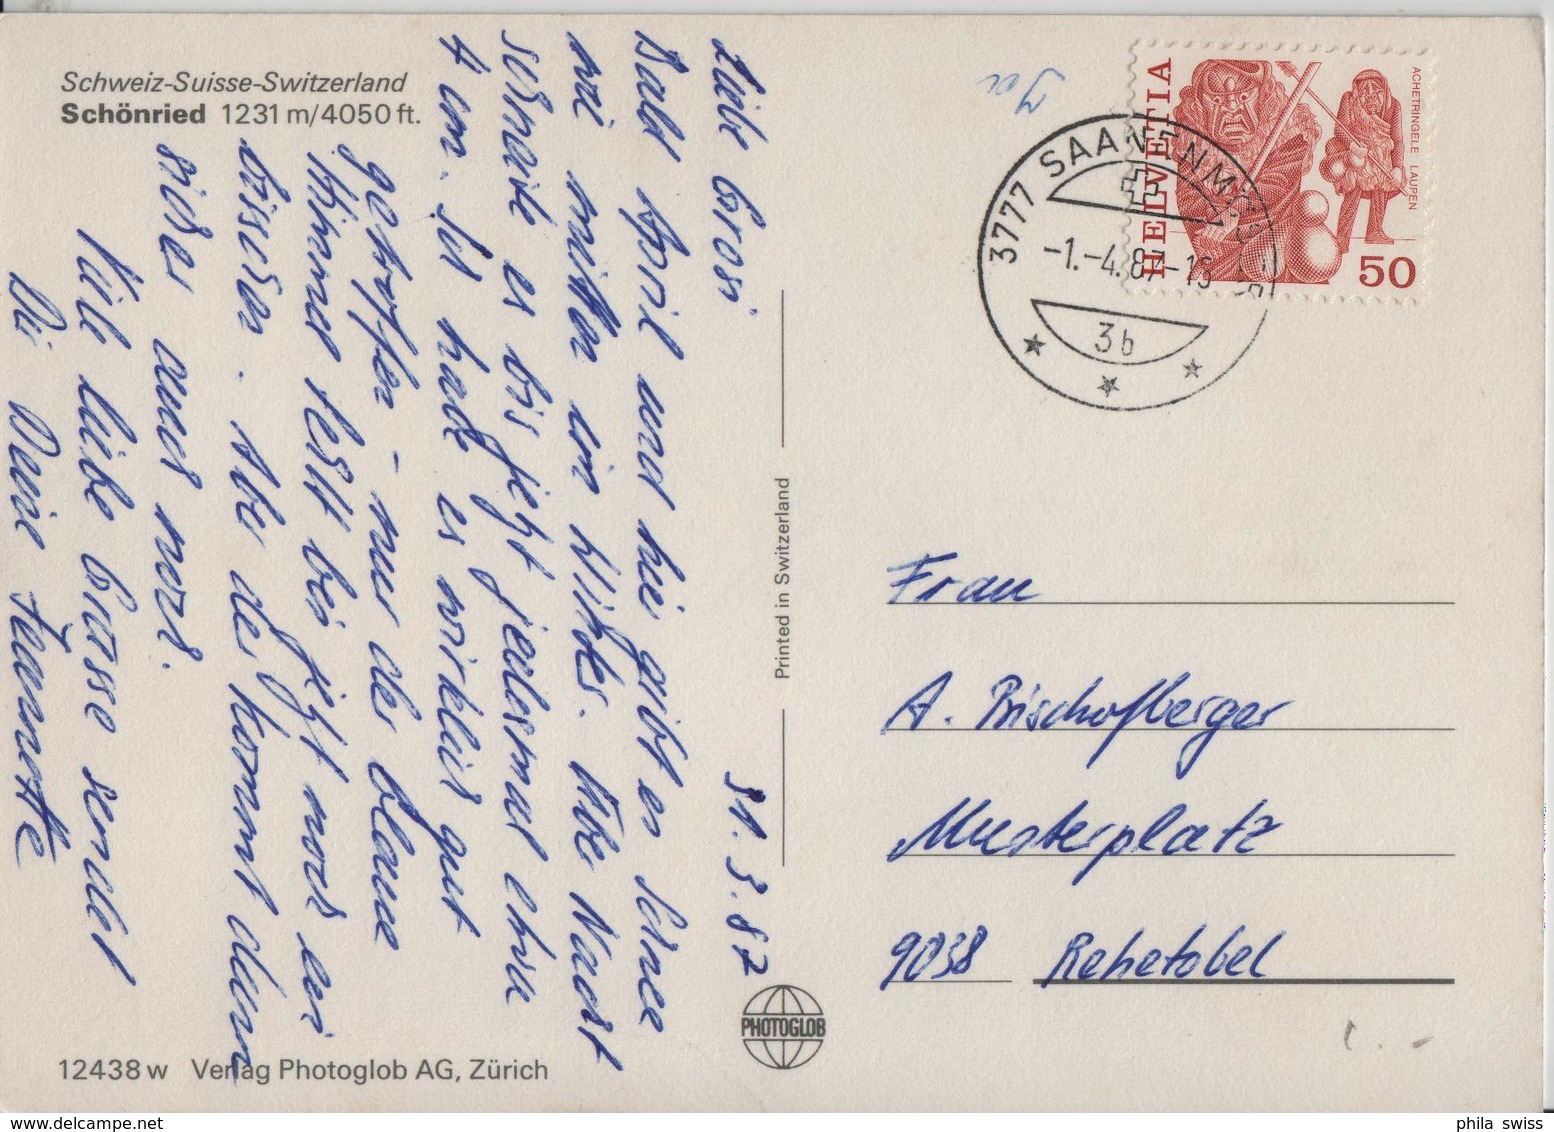 Schweiz-Suisse-Switzerland
Schönried 1231 m/4050 ft.
31.3.87
Liebe Grosi
Bald April und hier gibt es Schnee
wie mitten im Winter. Über Nacht
schneite es bis jetzt jedesmal etwa
4 cm. Ich habe es wirklich gut
getroffen - nur der blaue
Himmel fehlt bis jetzt noch ein
bisschen. Aber der kommt dann
sicher auch noch.
Viele liebe Grüsse sendet
Dir Deine Jeannette
Printed in Switzerland
PHOTOGLOB
12438 w Verlag Photoglob AG, Zürich
HELVETIA
ACHETRINGELE LAUPEN
50
3777 SAANENMÖSER
-1.-4.87-16
3b
Frau
A. Bischofberger
Musterplatz
9038 Rehetobel
1.-
phila swiss